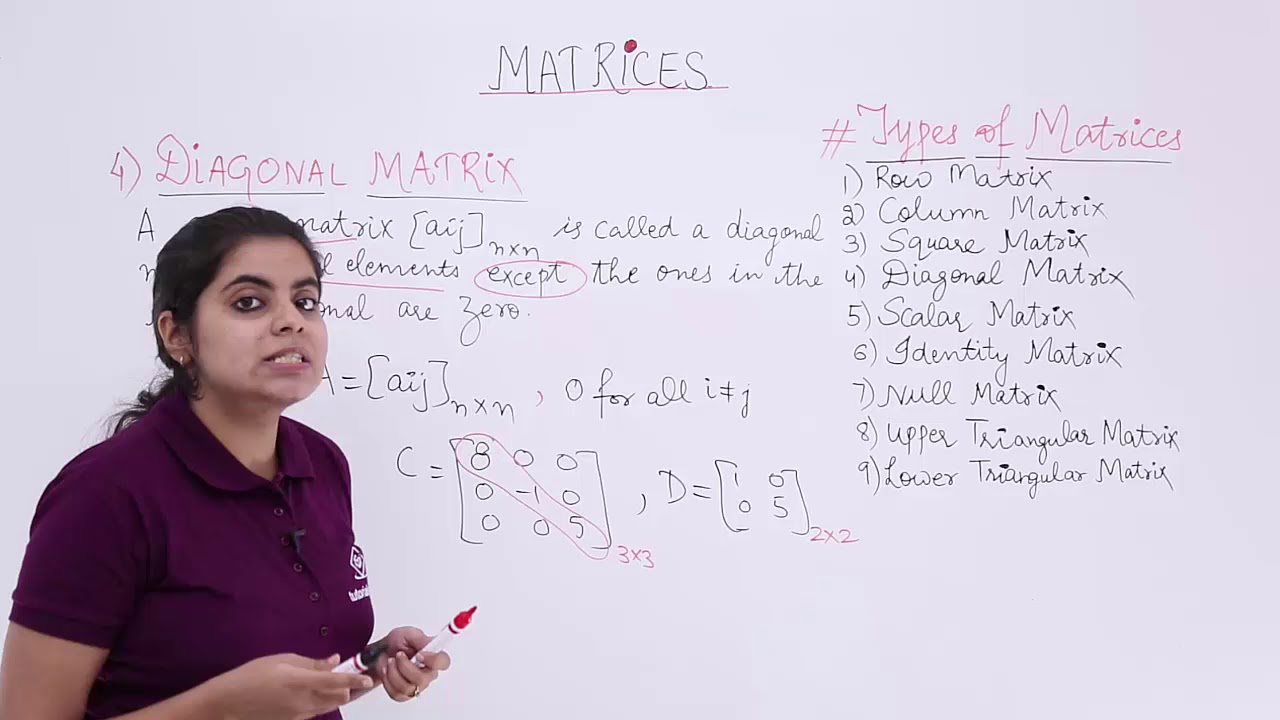 MATRICES
4) DIAGONAL MATRIX
A matrix [aij]n×n is called a diagonal
elements except the ones in the
are zero.
A = [aij]n×n , 0 for all i≠j
C = [8 0 0
0 -1 0
0 0 5]3×3
, D = [1 0
0 5]2×2
# Types of Matrices
1) Row Matrix
2) Column Matrix
3) Square Matrix
4) Diagonal Matrix
5) Scalar Matrix
6) Identity Matrix
7) Null Matrix
8) Upper Triangular Matrix
9) Lower Triangular Matrix